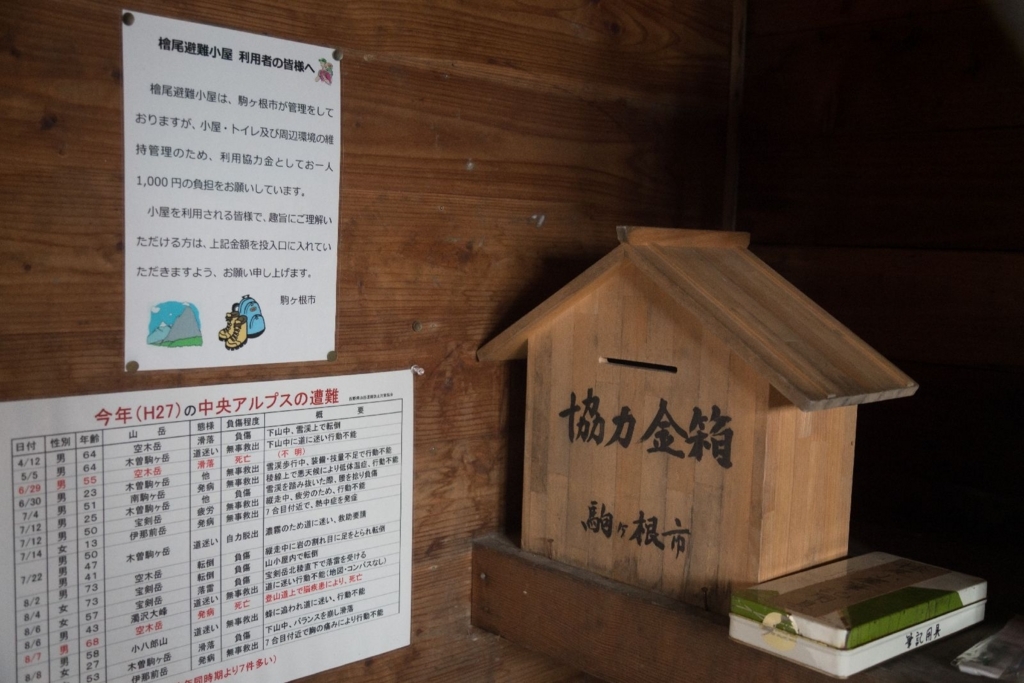 檜尾避難小屋 利用者の皆様へ
檜尾避難小屋は、駒ヶ根市が管理をして
おりますが、小屋・トイレ及び周辺環境の維
持管理のため、利用協力金としてお一人
1,000円の負担をお願いしています。
小屋を利用される皆様で、趣旨にご理解い
ただける方は、上記金額を投入口に入れてい
ただきますよう、お願い申し上げます。
駒ヶ根市
今年(H27)の中央アルプスの遭難
日付 性別 年齢 山 岳 態様 負傷程度 概 要
4/12 男 64 空木岳 滑落 負傷 下山中、雪渓上で転倒
5/5 男 64 木曽駒ヶ岳 道迷い 無事救出 下山中に道に迷い行動不能
6/29 男 55 空木岳 滑落 死亡 (不 明)
6/30 男 23 木曽駒ヶ岳 他 無事救出 雪渓歩行中、装備・技量不足で行動不能
7/4 男 51 南駒ヶ岳 発病 無事救出 稜線上で悪天候により低体温症、行動不能
7/12 男 25 木曽駒ヶ岳 他 負傷 雪渓を踏み抜いた際、腰を捻り負傷
7/12 男 50 宝剣岳 疲労 無事救出 縦走中、疲労のため、行動不能
7/12 女 13 伊那前岳 発病 無事救出 7合目付近で、熱中症を発症
7/14 男 50 木曽駒ヶ岳 道迷い 自力脱出 濃霧のため道に迷い、救助要請
男 47
7/22 男 41 空木岳 転倒 負傷 縦走中に岩の割れ目に足をとられ転倒
男 73 宝剣岳 転倒 負傷 山小屋内で転倒
8/2 男 73 宝剣岳 落雷 負傷 宝剣岳北稜直下で落雷を受ける
8/4 女 57 濁沢大峰 道迷い 無事救出 道に迷い行動不能(地図・コンパスなし)
8/6 女 43 空木岳 発病 死亡 登山道上で脳疾患により、死亡
8/7 男 68
8/6 男 58 小八郎山 道迷い 無事救出 蜂に追われ道に迷い、行動不能
男 27 滑落 負傷 下山中、バランスを崩し滑落
8/8 女 53 伊那前岳 発病 無事救出 7合目付近で胸の痛みにより行動不能
年同時期より7件多い)
協力金箱
駒ヶ根市
筆記用具